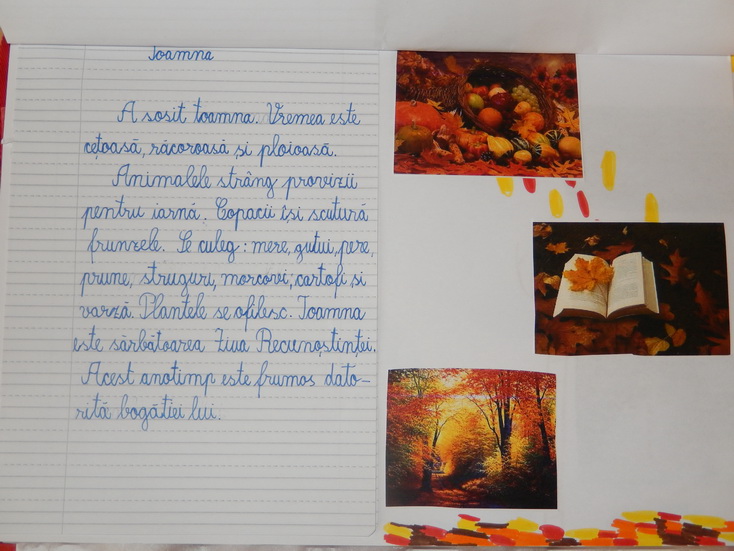 Toamna
A sosit toamna. Vremea este
cețoasă, răcoroasă și ploioasă.
Animalele strâng provizii
pentru iarnă. Copacii își scutură
frunzele. Se culeg: mere, gutui, pere,
prune, struguri, morcovi, cartofi și
varză. Plantele se ofilesc. Toamna
este sărbătoarea Ziua Recunoștinței.
Acest anotimp este frumos dato-
rită bogăției lui.